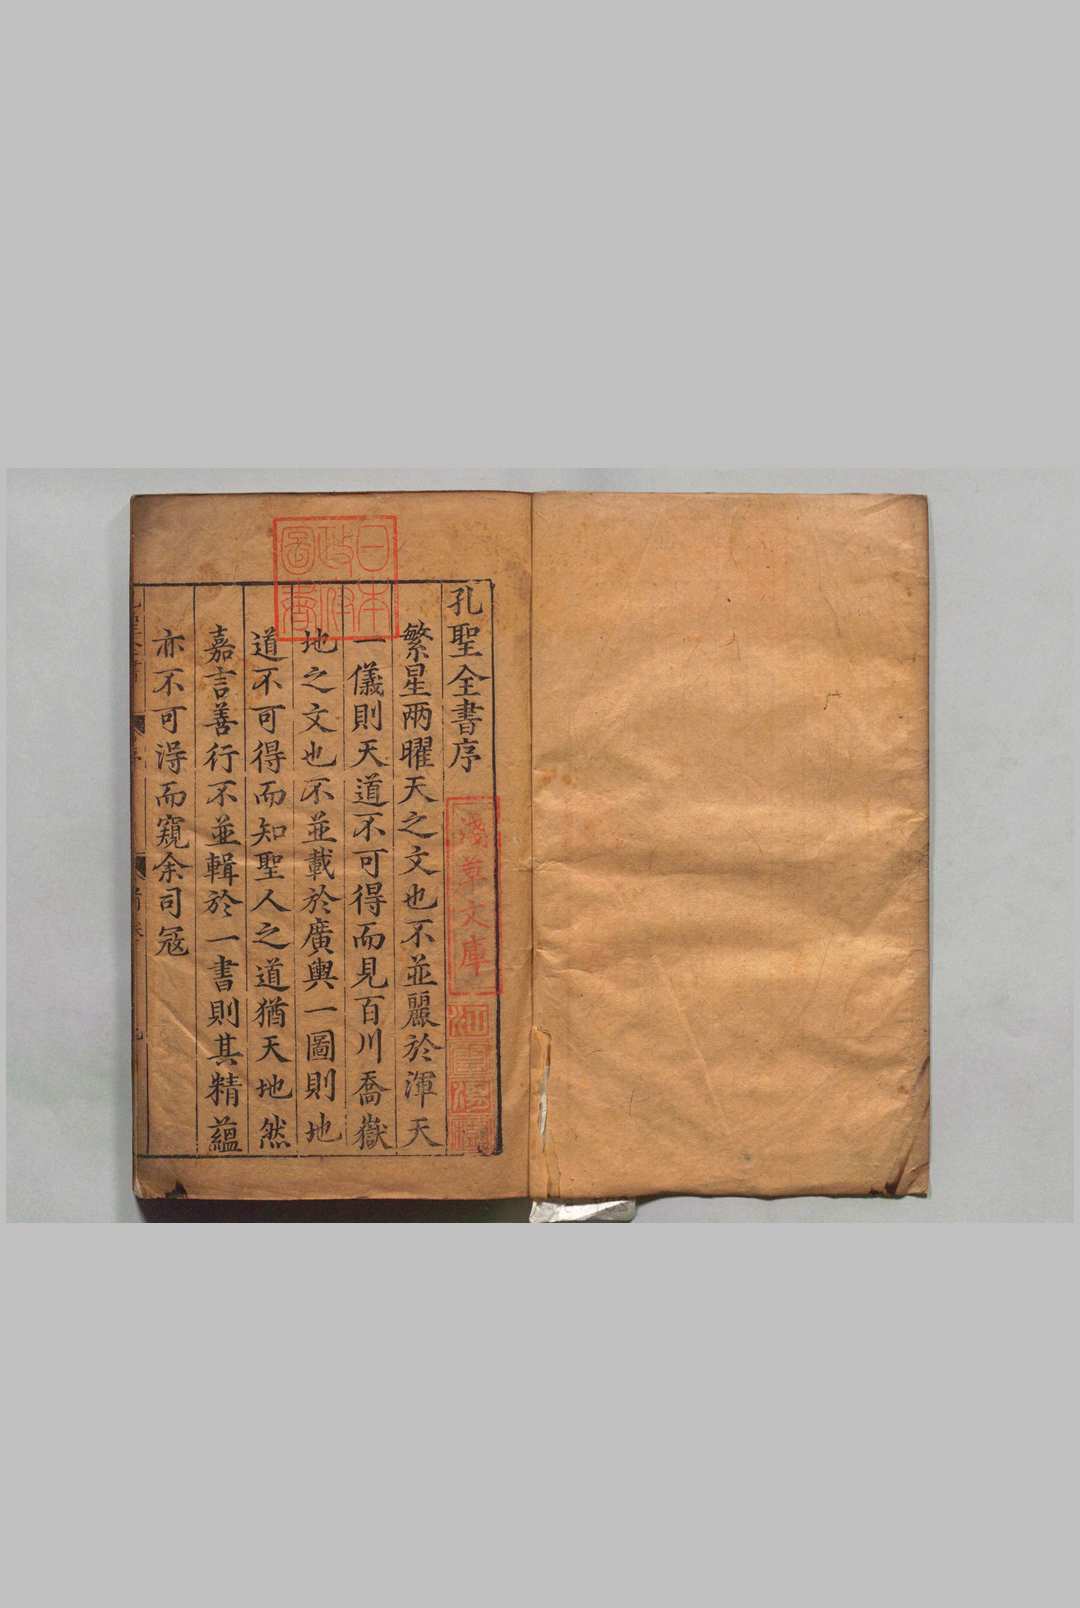 孔聖全書序
繁星兩曜天之文也不並麗於渾天
一儀則天道不可得而見百川喬嶽
地之文也不並載於廣輿一圖則地
道不可得而知聖人之道猶天地然
嘉言善行不並輯於一書則其精蘊
亦不可淂而窺余司冦
日本
政府
圖書
淺草文庫